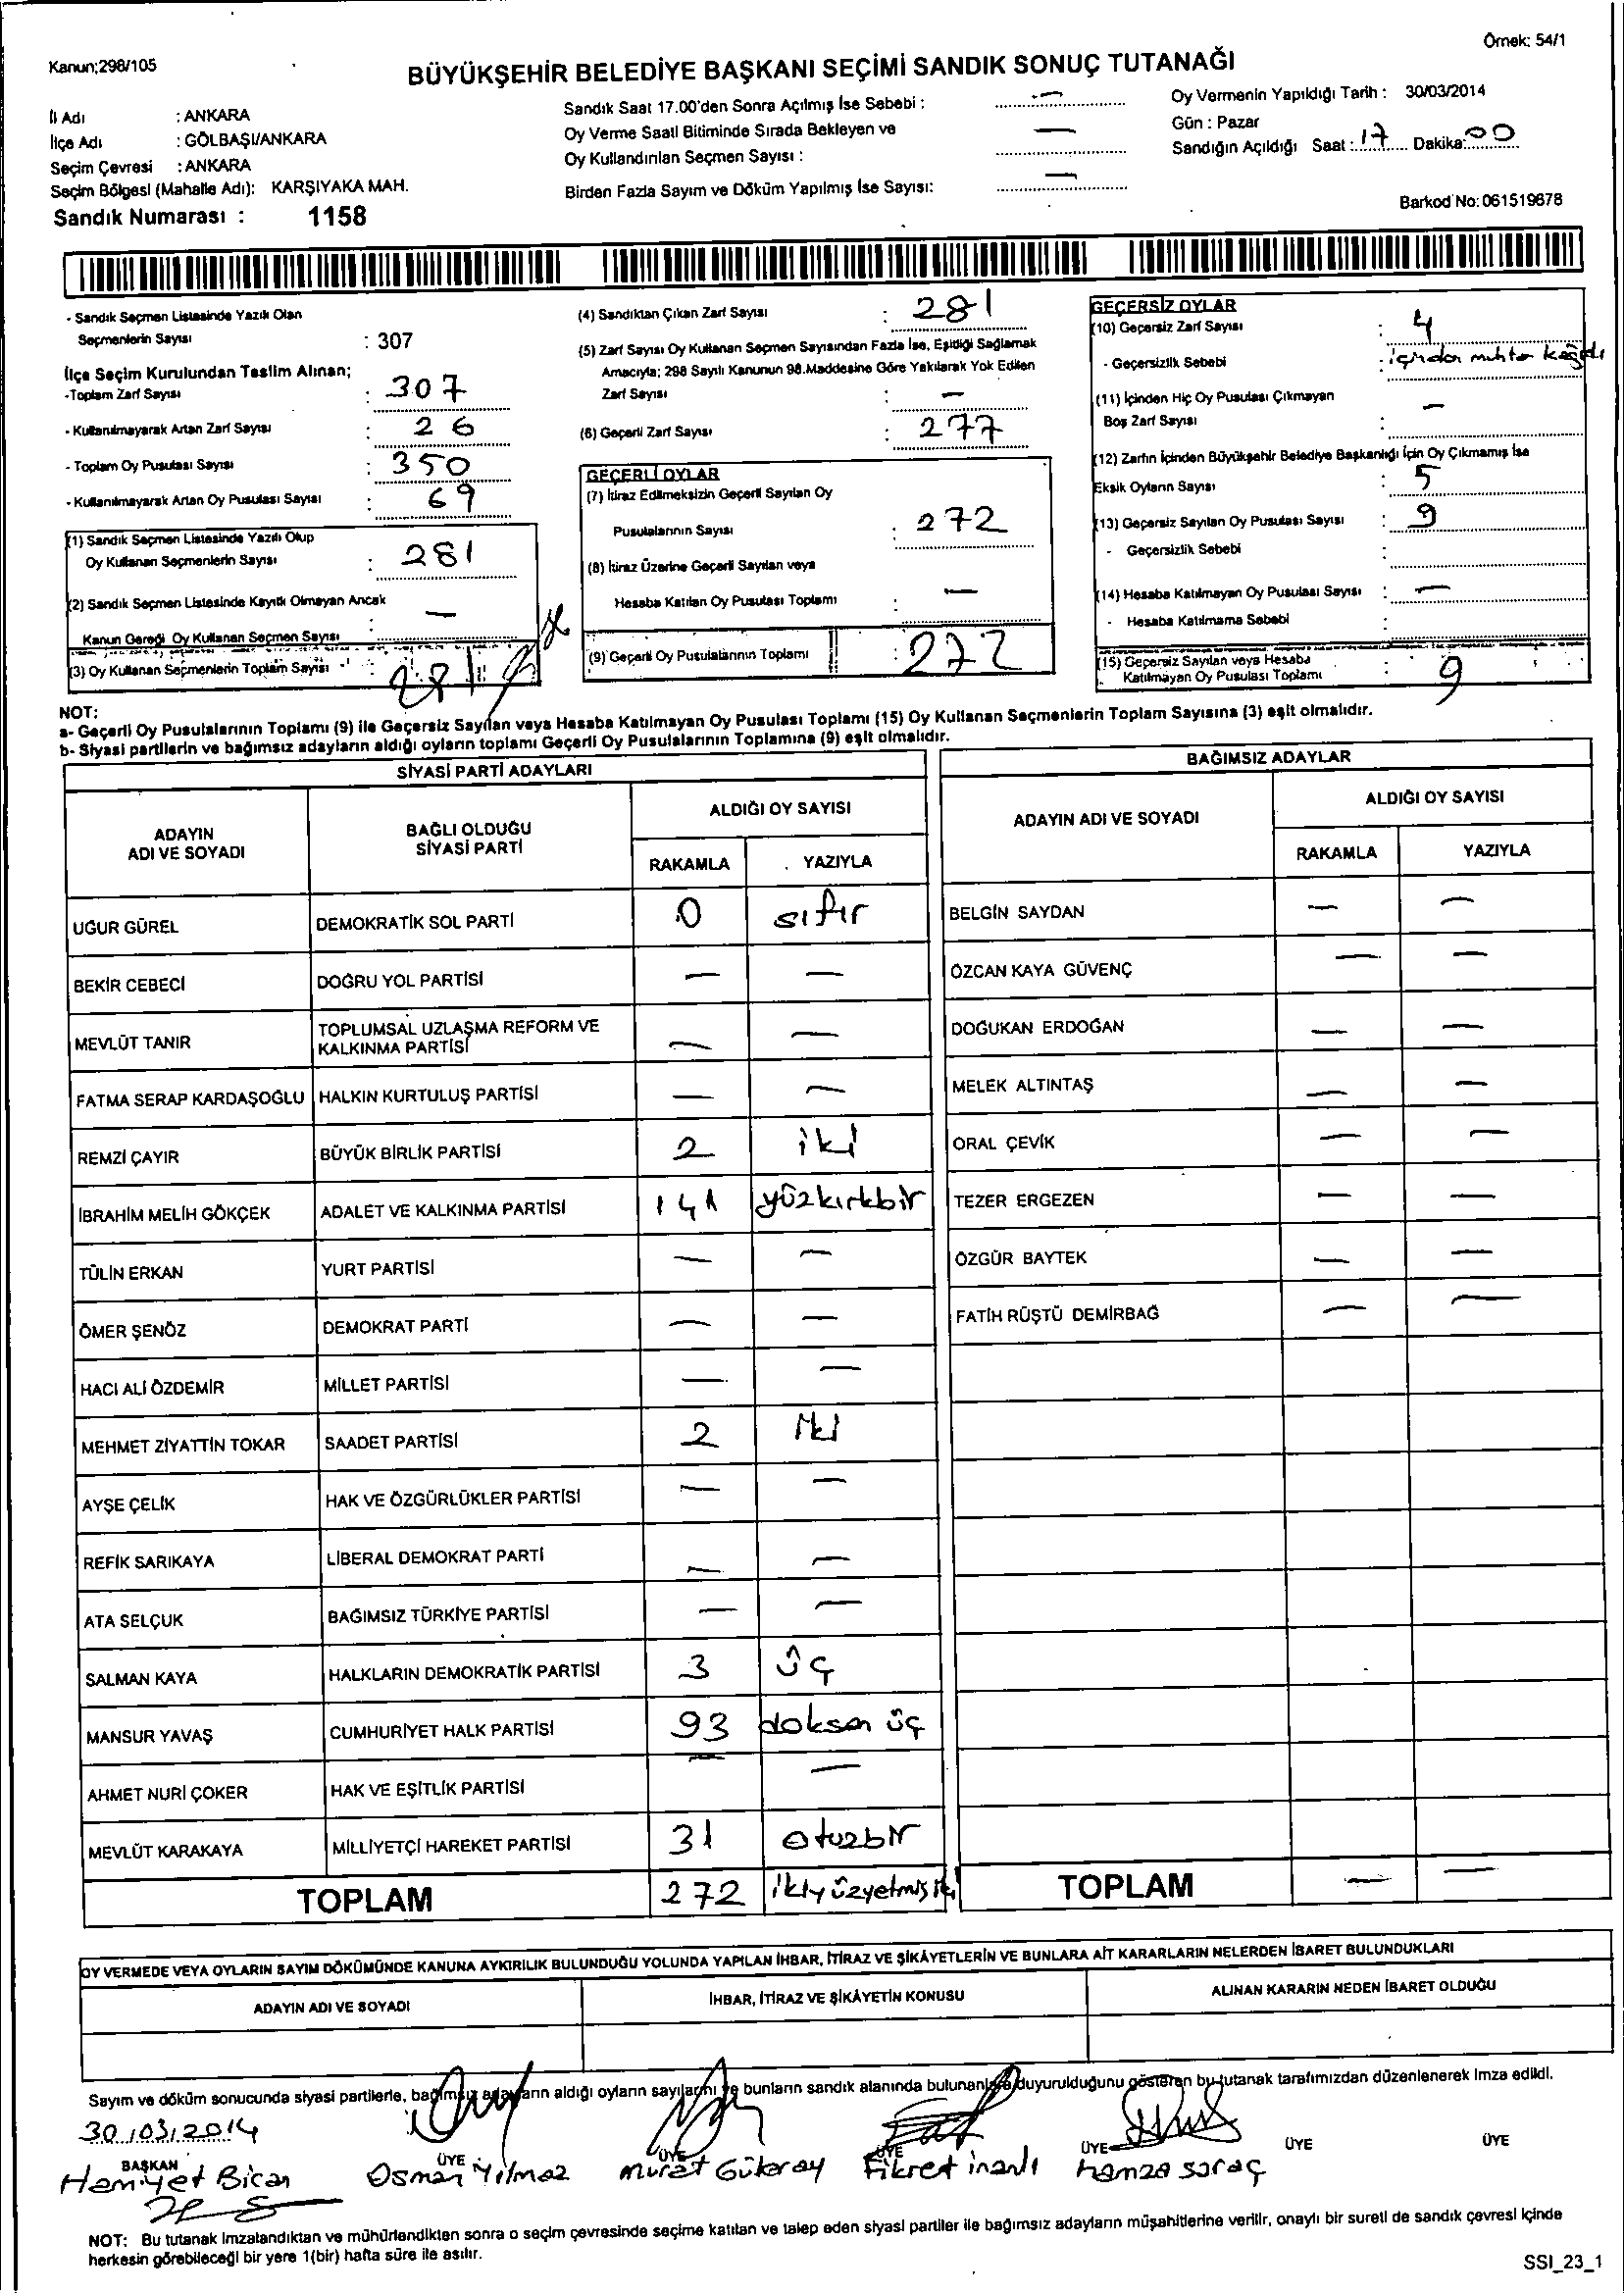 Kanun;298/105
Örnek: 54/1
BÜYÜKŞEHİR BELEDİYE BAŞKANI SEÇİMİ SANDIK SONUÇ TUTANAĞI
İl Adı : ANKARA
İlçe Adı : GÖLBAŞI/ANKARA
Seçim Çevresi : ANKARA
Seçim Bölgesi (Mahalle Adı): KARŞIYAKA MAH.
Sandık Numarası : 1158
Sandık Saat 17.00'den Sonra Açılmış İse Sebebi : —
Oy Verme Saati Bitiminde Sırada Bekleyen ve
Oy Kullandırılan Seçmen Sayısı : —
Birden Fazla Sayım ve Döküm Yapılmış İse Sayısı: —
Oy Vermenin Yapıldığı Tarih : 30/03/2014
Gün : Pazar
Sandığın Açıldığı Saat : 17 Dakika: 00
Barkod No: 061519678
- Sandık Seçmen Listesinde Yazılı Olan
Seçmenlerin Sayısı : 307
İlçe Seçim Kurulundan Teslim Alınan;
-Toplam Zarf Sayısı : 307
- Kullanılmayarak Artan Zarf Sayısı : 26
- Toplam Oy Pusulası Sayısı : 350
- Kullanılmayarak Artan Oy Pusulası Sayısı : 69
(1) Sandık Seçmen Listesinde Yazılı Olup
Oy Kullanan Seçmenlerin Sayısı : 281
(2) Sandık Seçmen Listesinde Kayıtlı Olmayan Ancak
Kanun Gereği Oy Kullanan Seçmen Sayısı : —
(3) Oy Kullanan Seçmenlerin Toplam Sayısı : 281
(4) Sandıktan Çıkan Zarf Sayısı : 281
(5) Zarf Sayısı Oy Kullanan Seçmen Sayısından Fazla İse, Eşitliği Sağlamak
Amacıyla; 298 Sayılı Kanunun 98.Maddesine Göre Yakılarak Yok Edilen
Zarf Sayısı : —
(6) Geçerli Zarf Sayısı : 277
GEÇERLİ OYLAR
(7) İtiraz Edilmeksizin Geçerli Sayılan Oy
Pusulalarının Sayısı : 272
(8) İtiraz Üzerine Geçerli Sayılan veya
Hesaba Katılan Oy Pusulası Toplamı : —
(9) Geçerli Oy Pusulalarının Toplamı : 272
GEÇERSİZ OYLAR
(10) Geçersiz Zarf Sayısı : 4
- Geçersizlik Sebebi : içinden muhtar kağıdı
(11) İçinden Hiç Oy Pusulası Çıkmayan
Boş Zarf Sayısı : —
(12) Zarfın İçinden Büyükşehir Belediye Başkanlığı İçin Oy Çıkmamış İse
Eksik Oyların Sayısı : 5
(13) Geçersiz Sayılan Oy Pusulası Sayısı : 9
- Geçersizlik Sebebi :
(14) Hesaba Katılmayan Oy Pusulası Sayısı : —
- Hesaba Katılmama Sebebi :
(15) Geçersiz Sayılan veya Hesaba
Katılmayan Oy Pusulası Toplamı : 9
NOT:
a- Geçerli Oy Pusulalarının Toplamı (9) ile Geçersiz Sayılan veya Hesaba Katılmayan Oy Pusulası Toplamı (15) Oy Kullanan Seçmenlerin Toplam Sayısına (3) eşit olmalıdır.
b- Siyasi partilerin ve bağımsız adayların aldığı oyların toplamı Geçerli Oy Pusulalarının Toplamına (9) eşit olmalıdır.
SİYASİ PARTİ ADAYLARI
ADAYIN ADI VE SOYADI BAĞLI OLDUĞU SİYASİ PARTİ ALDIĞI OY SAYISI
RAKAMLA YAZIYLA
UĞUR GÜREL DEMOKRATİK SOL PARTİ 0 sıfır
BEKİR CEBECİ DOĞRU YOL PARTİSİ — —
MEVLÜT TANIR TOPLUMSAL UZLAŞMA REFORM VE KALKINMA PARTİSİ — —
FATMA SERAP KARDAŞOĞLU HALKIN KURTULUŞ PARTİSİ — —
REMZİ ÇAYIR BÜYÜK BİRLİK PARTİSİ 2 iki
İBRAHİM MELİH GÖKÇEK ADALET VE KALKINMA PARTİSİ 141 yüzkırkbir
TÜLİN ERKAN YURT PARTİSİ — —
ÖMER ŞENÖZ DEMOKRAT PARTİ — —
HACI ALİ ÖZDEMİR MİLLET PARTİSİ — —
MEHMET ZİYATTİN TOKAR SAADET PARTİSİ 2 iki
AYŞE ÇELİK HAK VE ÖZGÜRLÜKLER PARTİSİ — —
REFİK SARIKAYA LİBERAL DEMOKRAT PARTİ — —
ATA SELÇUK BAĞIMSIZ TÜRKİYE PARTİSİ — —
SALMAN KAYA HALKLARIN DEMOKRATİK PARTİSİ 3 üç
MANSUR YAVAŞ CUMHURİYET HALK PARTİSİ 93 doksan üç
AHMET NURİ ÇOKER HAK VE EŞİTLİK PARTİSİ — —
MEVLÜT KARAKAYA MİLLİYETÇİ HAREKET PARTİSİ 31 otuzbir
TOPLAM 272 ikiyüzyetmişiki
BAĞIMSIZ ADAYLAR
ADAYIN ADI VE SOYADI ALDIĞI OY SAYISI
RAKAMLA YAZIYLA
BELGİN SAYDAN — —
ÖZCAN KAYA GÜVENÇ — —
DOĞUKAN ERDOĞAN — —
MELEK ALTINTAŞ — —
ORAL ÇEVİK — —
TEZER ERGEZEN — —
ÖZGÜR BAYTEK — —
FATİH RÜŞTÜ DEMİRBAĞ — —
TOPLAM — —
OY VERMEDE VEYA OYLARIN SAYIM DÖKÜMÜNDE KANUNA AYKIRILIK BULUNDUĞU YOLUNDA YAPILAN İHBAR, İTİRAZ VE ŞİKÂYETLERİN VE BUNLARA AİT KARARLARIN NELERDEN İBARET BULUNDUKLARI
ADAYIN ADI VE SOYADI İHBAR, İTİRAZ VE ŞİKÂYETİN KONUSU ALINAN KARARIN NEDEN İBARET OLDUĞU
Sayım ve döküm sonucunda siyasi partilerle, bağımsız adayların aldığı oyların sayılarını ve bunların sandık alanında bulunanlara duyurulduğunu gösteren bu tutanak tarafımızdan düzenlenerek imza edildi.
30/03/2014
BAŞKAN ÜYE ÜYE ÜYE ÜYE ÜYE ÜYE
Hamiyet Bican Osman Yılmaz Murat Gükeray Fikret inanlı hamza saraç
NOT: Bu tutanak imzalandıktan ve mühürlendikten sonra o seçim çevresinde seçime katılan ve talep eden siyasi partiler ile bağımsız adayların müşahitlerine verilir, onaylı bir sureti de sandık çevresi içinde
herkesin görebileceği bir yere 1(bir) hafta süre ile asılır.
SSI_23_1